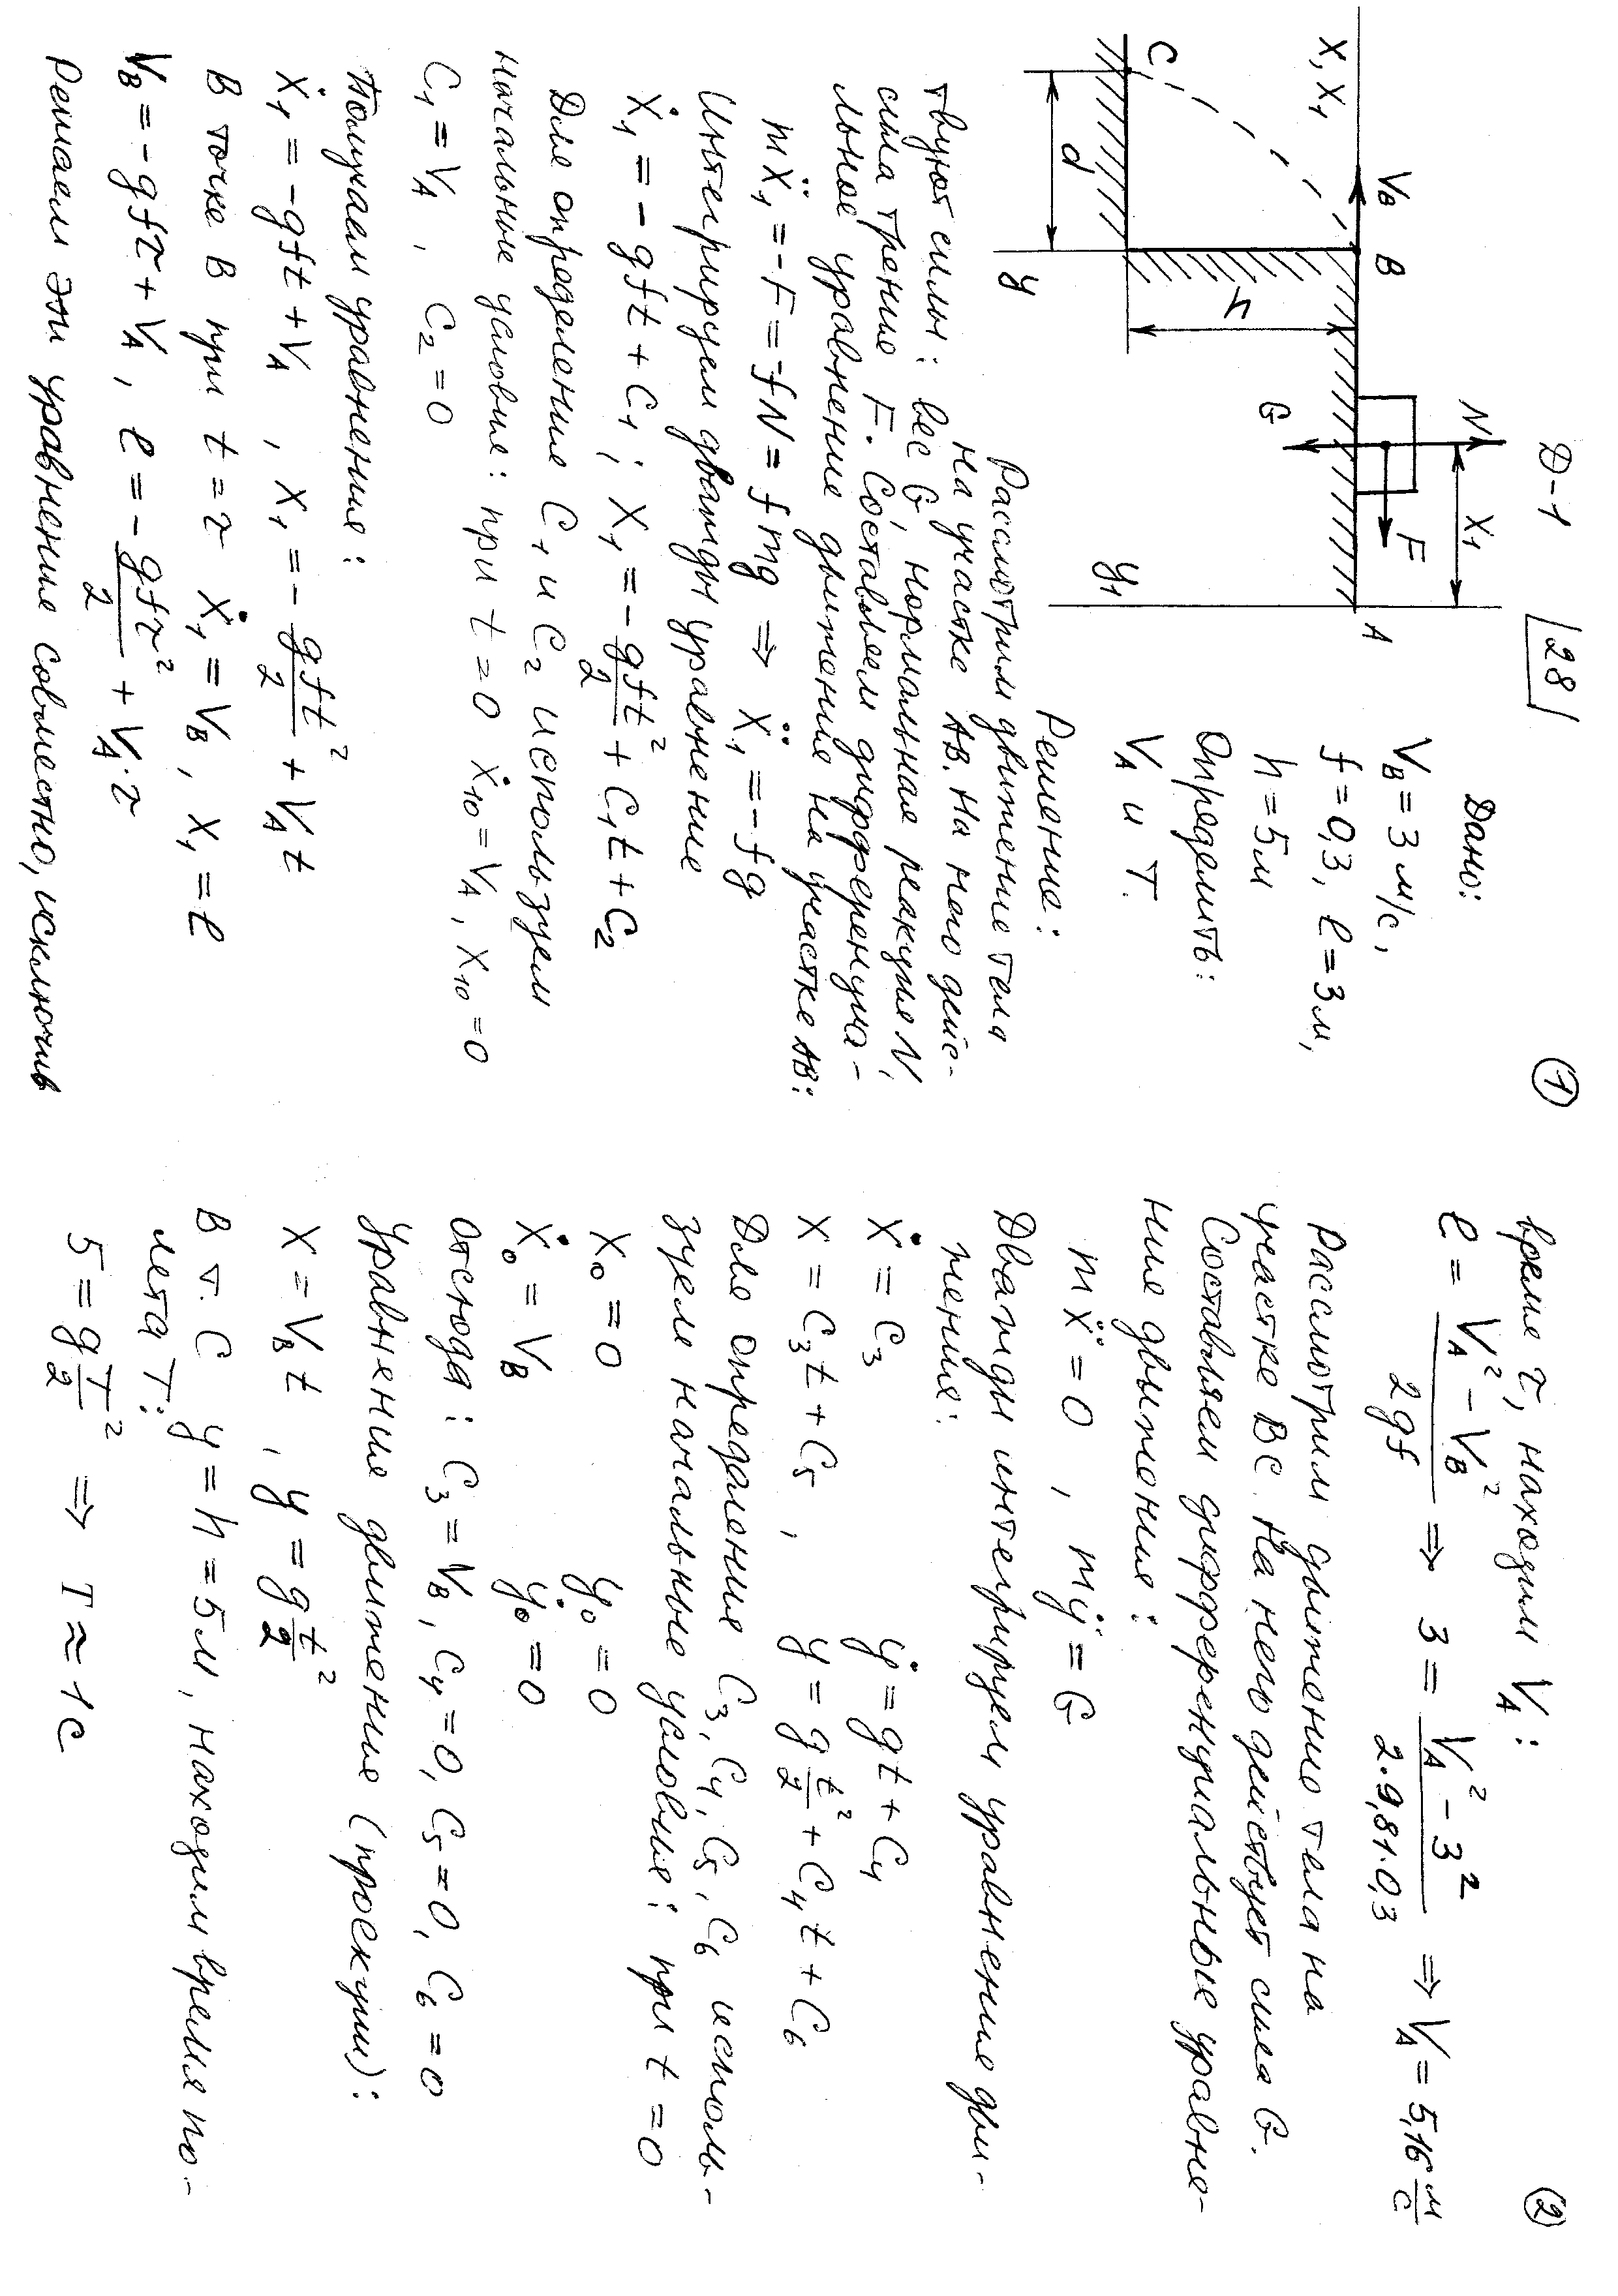 Д-1 [28] ①
Дано:
V_B = 3 м/с,
f = 0,3, ℓ = 3 м,
h = 5 м
Определить:
V_A и T.
x, x₁ V_B B N x₁ A
G F
h
C d y y₁
Решение:
Рассмотрим движение тела
на участке AB. На него дейс-
твуют силы: вес G, нормальная реакция N,
сила трения F. Составляем дифференциа-
льное уравнение движения на участке AB:
mẍ₁ = -F = -fN = fmg ⇒ ẍ₁ = -fg
Интегрируем дважды уравнение
ẋ₁ = -gft + C₁; x₁ = -gft²/2 + C₁t + C₂
Для определения C₁ и C₂ используем
начальные условия: при t = 0 ẋ₁₀ = V_A, x₁₀ = 0
C₁ = V_A , C₂ = 0
Получаем уравнения:
ẋ₁ = -gft + V_A , x₁ = -gft²/2 + V_A t
В точке B при t = τ ẋ₁ = V_B, x₁ = ℓ
V_B = -gfτ + V_A, ℓ = -gfτ²/2 + V_A·τ
Решаем эти уравнения совместно, исключив
②
время τ, находим V_A:
ℓ = (V_A² - V_B²)/(2gf) ⇒ 3 = (V_A² - 3²)/(2·9,81·0,3) ⇒ V_A = 5,16 м/с
Рассмотрим движению тела на
участке BC. На него действует сила G.
Составляем дифференциальные уравне-
ние движения:
mẍ = 0 , mÿ = G
Дважды интегрируем уравнение дви-
жения:
ẋ = C₃ ẏ = gt + C₄
x = C₃t + C₅ , y = gt²/2 + C₄t + C₆
Для определения C₃, C₄, C₅, C₆ исполь-
зуем начальные условия: при t = 0
x₀ = 0 y₀ = 0
ẋ₀ = V_B ẏ₀ = 0
Отсюда: C₃ = V_B, C₄ = 0, C₅ = 0, C₆ = 0
Уравнение движения (проекции):
x = V_B t , y = gt²/2
В т. C y = h = 5 м, находим время по-
лета T:
5 = gT²/2 ⇒ T ≈ 1 с